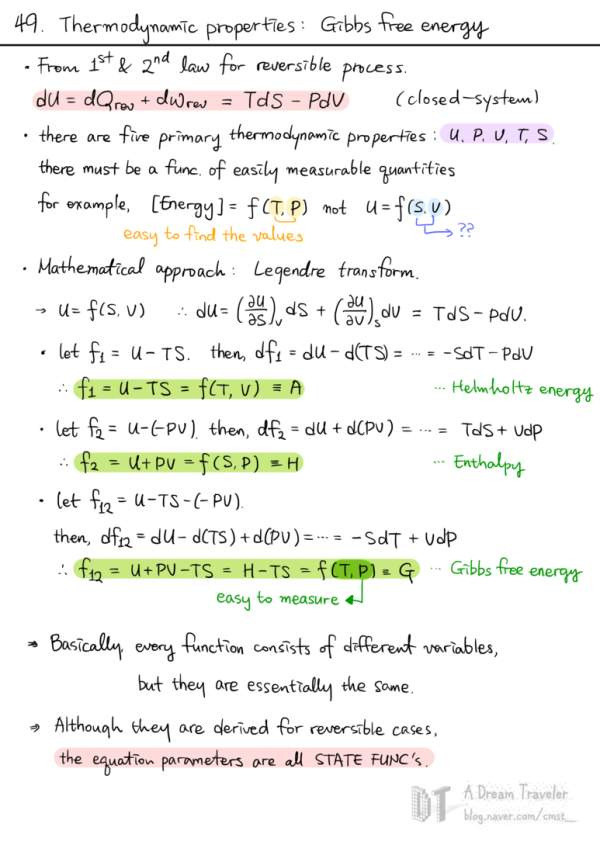 49. Thermodynamic properties: Gibbs free energy
· From 1st & 2nd law for reversible process.
dU = dQrev + dWrev = TdS - PdV (closed-system)
· there are five primary thermodynamic properties: U, P, V, T, S.
there must be a func. of easily measurable quantities
for example, [Energy] = f(T, P) not U = f(S, V)
easy to find the values → ??
· Mathematical approach: Legendre transform.
→ U = f(S, V) ∴ dU = (∂U/∂S)v dS + (∂U/∂V)s dV = TdS - PdV.
· let f1 = U - TS. then, df1 = dU - d(TS) = ⋯ = -SdT - PdV
∴ f1 = U - TS = f(T, V) ≡ A ⋯ Helmholtz energy
· let f2 = U - (-PV). then, df2 = dU + d(PV) = ⋯ = TdS + VdP
∴ f2 = U + PV = f(S, P) ≡ H ⋯ Enthalpy
· let f12 = U - TS - (-PV).
then, df12 = dU - d(TS) + d(PV) = ⋯ = -SdT + VdP
∴ f12 = U + PV - TS = H - TS = f(T, P) ≡ G ⋯ Gibbs free energy
easy to measure ←
→ Basically, every function consists of different variables,
but they are essentially the same.
⇒ Although they are derived for reversible cases,
the equation parameters are all STATE FUNC's.
DT A Dream Traveler
blog.naver.com/cmst_